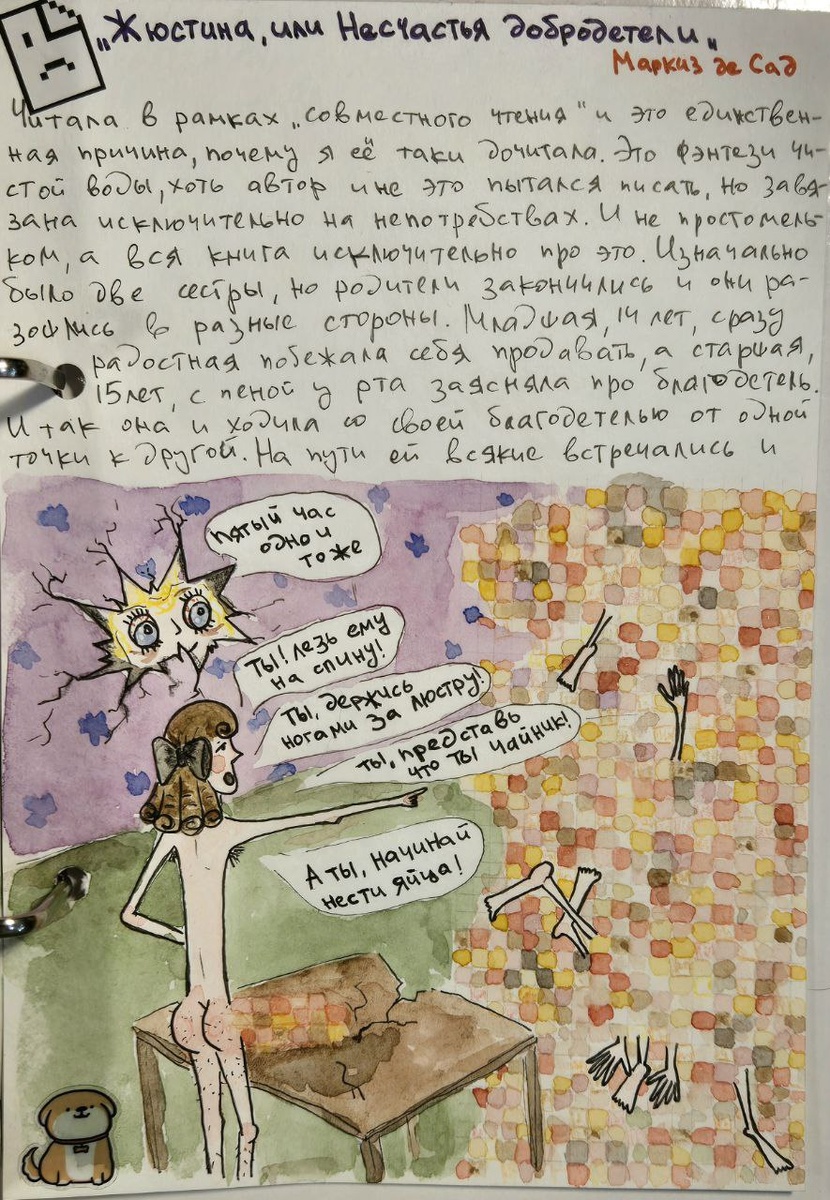 „Жюстина, или Несчастья добродетели„
Маркиз де Сад
Читала в рамках „совместного чтения" и это единствен-
ная причина, почему я её таки дочитала. Это фэнтези чи-
стой воды, хоть автор и не это пытался писать, но завя-
зана исключительно на непотребствах. И не простомель-
ком, а вся книга исключительно про это. Изначально
было две сестры, но родители закончились и они ра-
зошлись в разные стороны. Младшая, 14 лет, сразу
радостная побежала себя продавать, а старшая,
15 лет, с пеной у рта заясняла про благодетель.
И так она и ходила со своей благодетелью от одной
точки к другой. На пути ей всякие встречались и
пятый час
одно и
то же
Ты! Лезь ему
на спину!
Ты, держись
ногами за люстру!
Ты, представь
что ты чайник!
А ты, начинай
нести яйца!